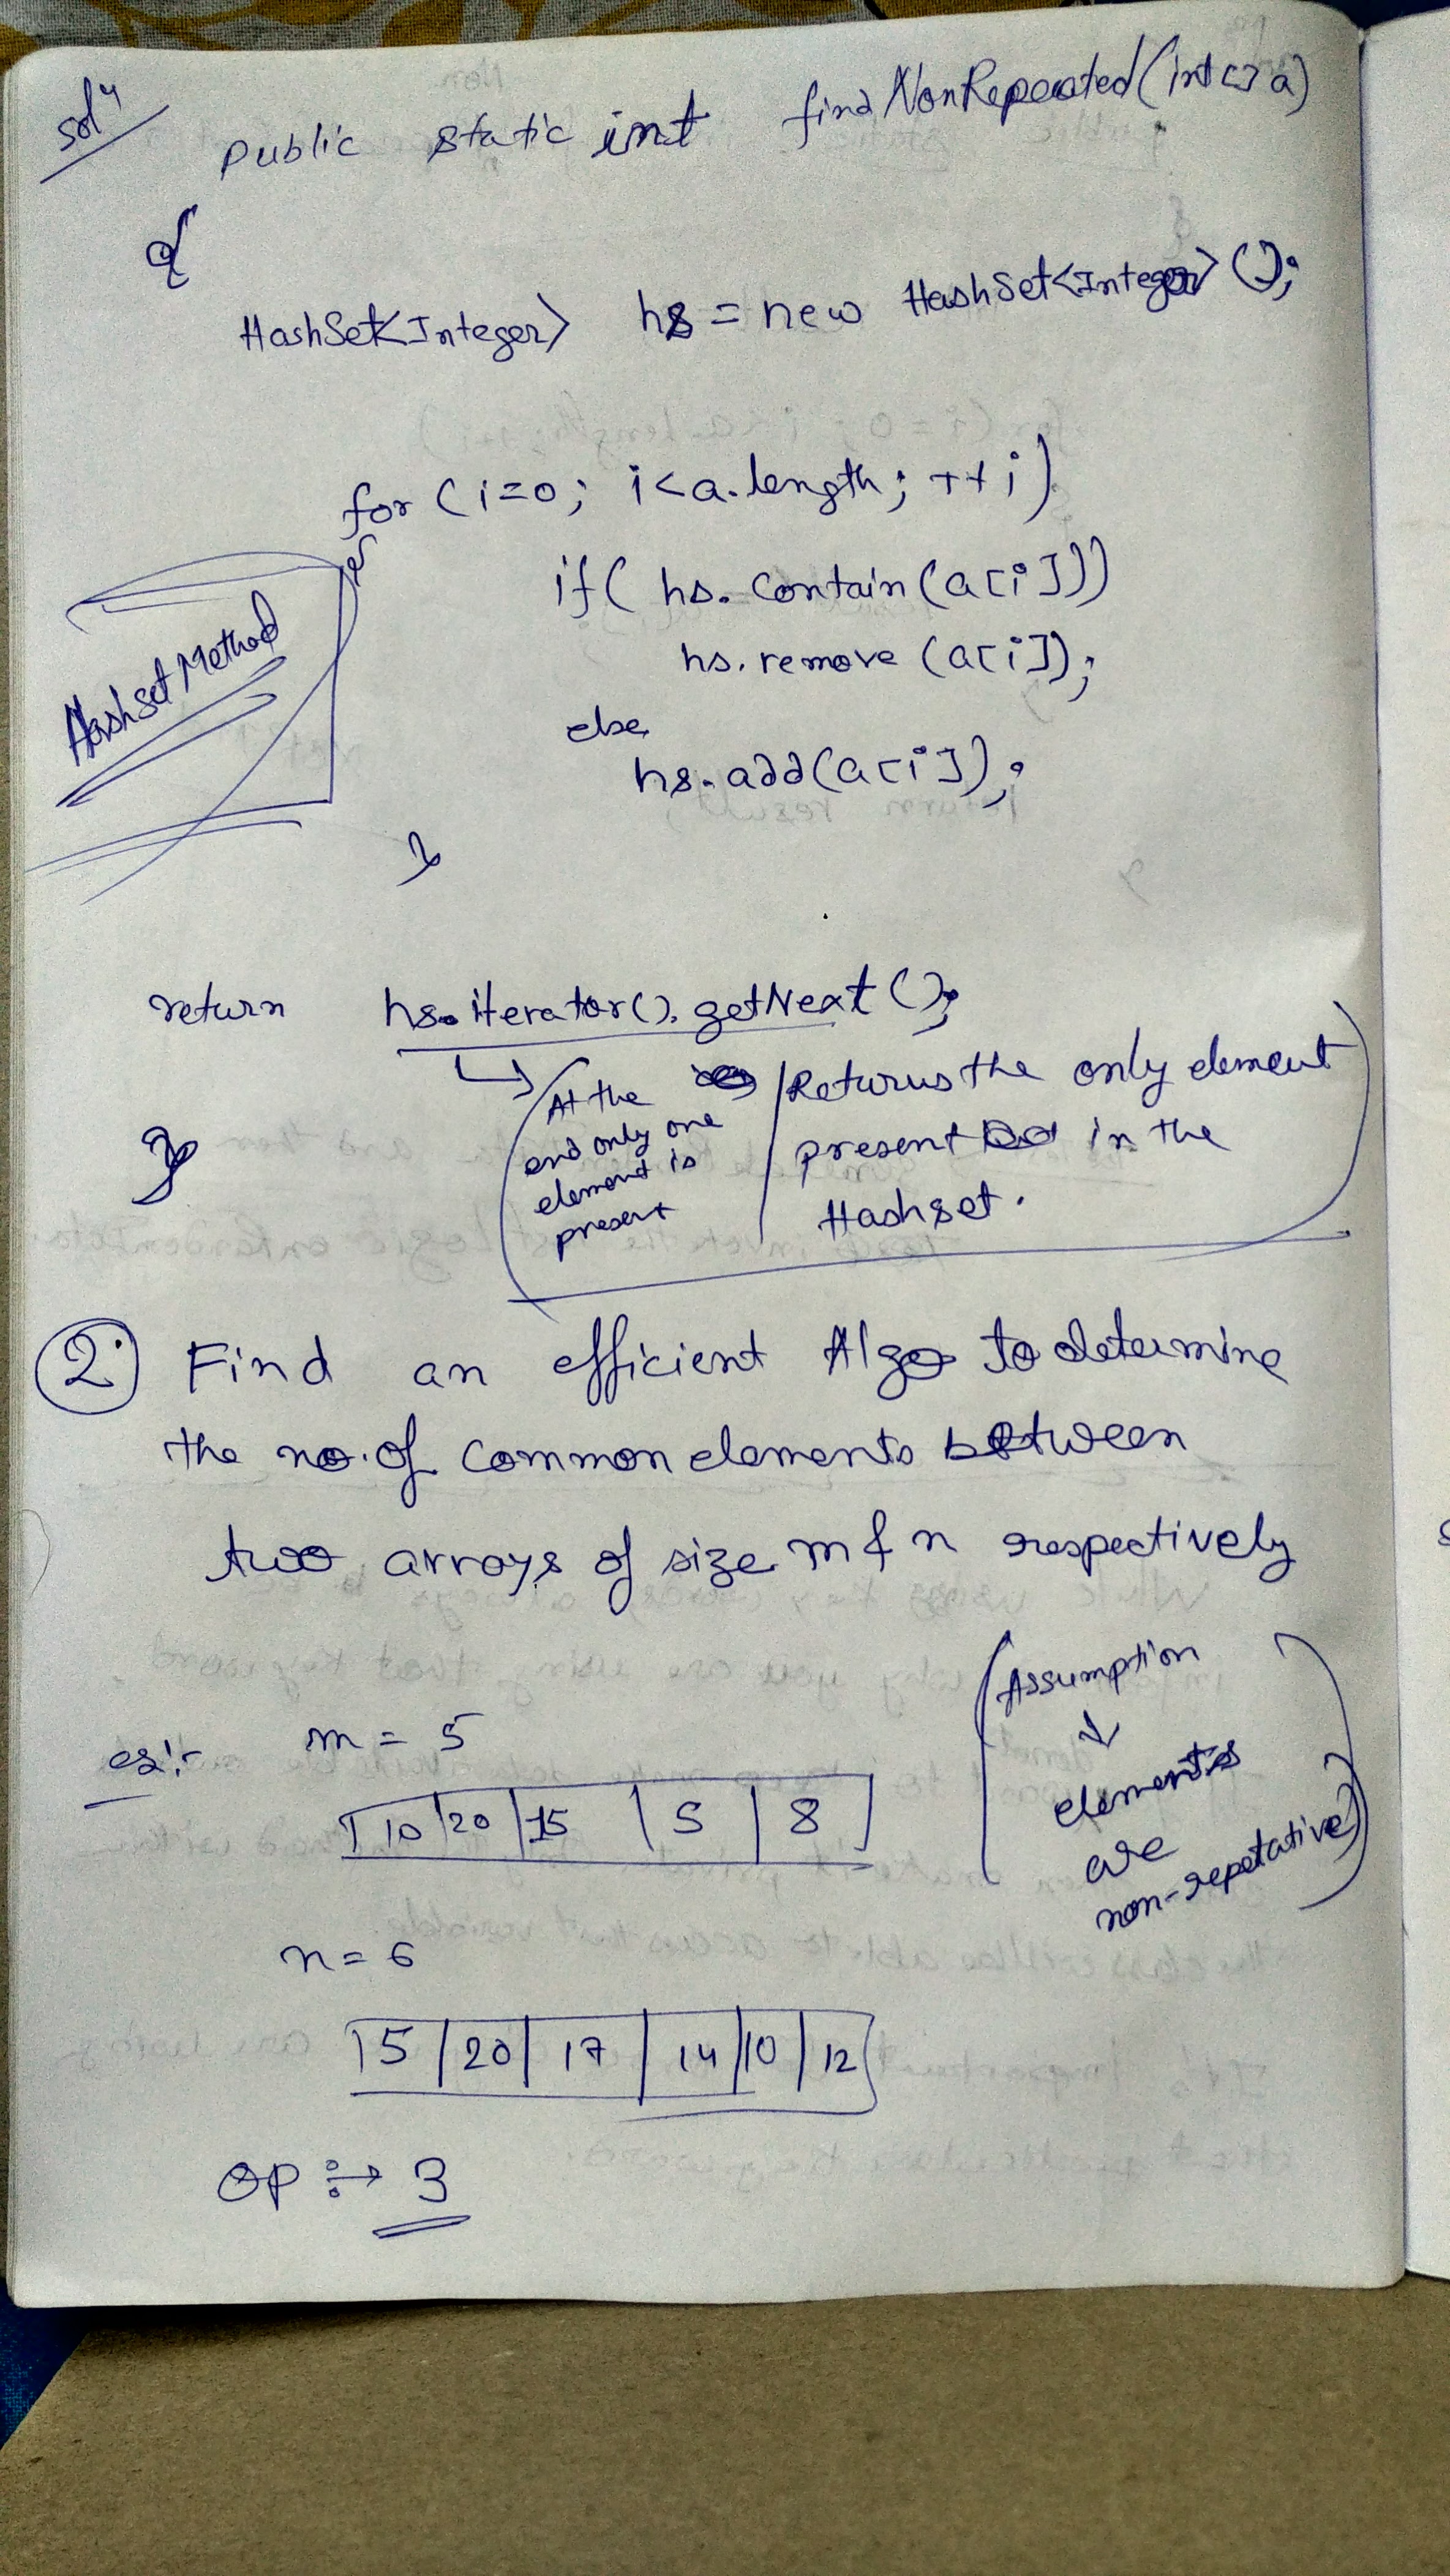 soln
public static int findNonRepeated(int[] a)
{
HashSet<Integer> hs = new HashSet<Integer>();
for (i=0; i<a.length; ++i)
{
if( hs.contain(a[i]))
hs.remove (a[i]);
else
hs.add(a[i]);
}
Hashset Method
return hs.iterator().getNext();
}
At the
end only one
element is
present
Returns the only element
present in the
Hashset.
2. Find an efficient Algo to determine
the no. of common elements between
two arrays of size m & n respectively
ex:- m = 5
10 20 15 5 8
(Assumption
↓
elements
are
non-repetative)
n = 6
15 20 17 14 10 12
OP :→ 3